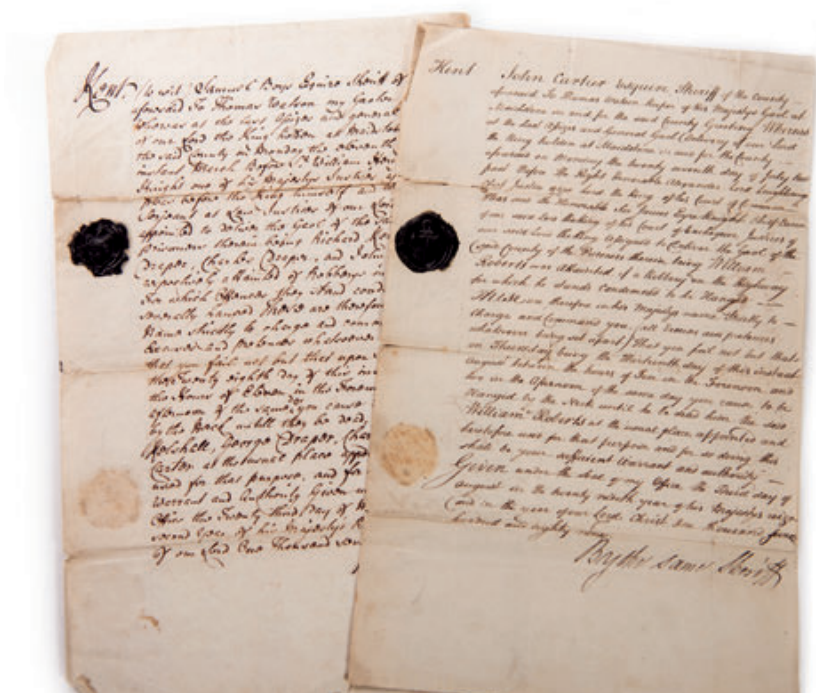 Kent. to wit Samuel Boys Esquire Sheriff of
aforesaid To Thomas Watson my Gaoler
whereas at the last Assizes and general
of our Lord the King holden at Maidstone
the said County on Monday the eleventh
instant March Before Sr. William
Knight one of his Majestys Justices
pleas before the King himself and
Serjeant at Law Justices of our Lord
appointed to deliver the Gaol of the
prisoners therein being Richard
Draper, Charles Draper, and John
respectively attainted of Robberys
For which offences they stand
severally hanged These are therefore
Name strictly to charge and
excuses and pretences whatsoever
that you fail not but that upon
the twenty eighth day of this
the Hours of Eleven in the Forenoon
afternoon of the same you cause
by the Neck untill they be dead,
George Draper,
Carter at the usual place
used for that purpose, and for
Warrant and Authority Given
Office the Twenty third Day of
second Year of his Majestys
of our Lord One Thousand
Kent John Cartier Esquire Sheriff of the County
aforesaid To Thomas Watson Keeper of his Majestys Gaol at
Maidstone in and for the said County Greeting Whereas
at the last Assizes and General Gaol Delivery of our Lord
the King holden at Maidstone in and for the County
aforesaid on Monday the twenty seventh day of July
past Before the Right Honorable Alexander Lord Loughborough
Chief Justice of our Lord the King of his Court of Common
Pleas and the Honorable Sir James Eyre Knight Chief Baron
of our said Lord the King of his Court of Exchequer Justices of
our said Lord the King assigned to deliver the Gaol of the
County of the Prisoners therein being William
Roberts was attainted of a Robbery on the Highway
for which he stands Condemned to be Hanged
These are therefore in his Majestys name strictly to
Charge and Command you (all excuses and pretences
whatsoever being set apart) That you fail not but that
on Thursday being the thirteenth day of this instant
August between the hours of Ten in the Forenoon and
two in the Afternoon of the same day you cause to be
Hanged by the Neck until he be dead him the said
William Roberts at the usual place appointed and
heretofore used for that purpose and for so doing this
shall be your sufficient Warrant and authority
Given under the Seal of my Office the Third day of
August in the twenty ninth year of his Majestys reign
and in the year of our Lord Christ One thousand seven
hundred and eighty nine
By the same Sheriff